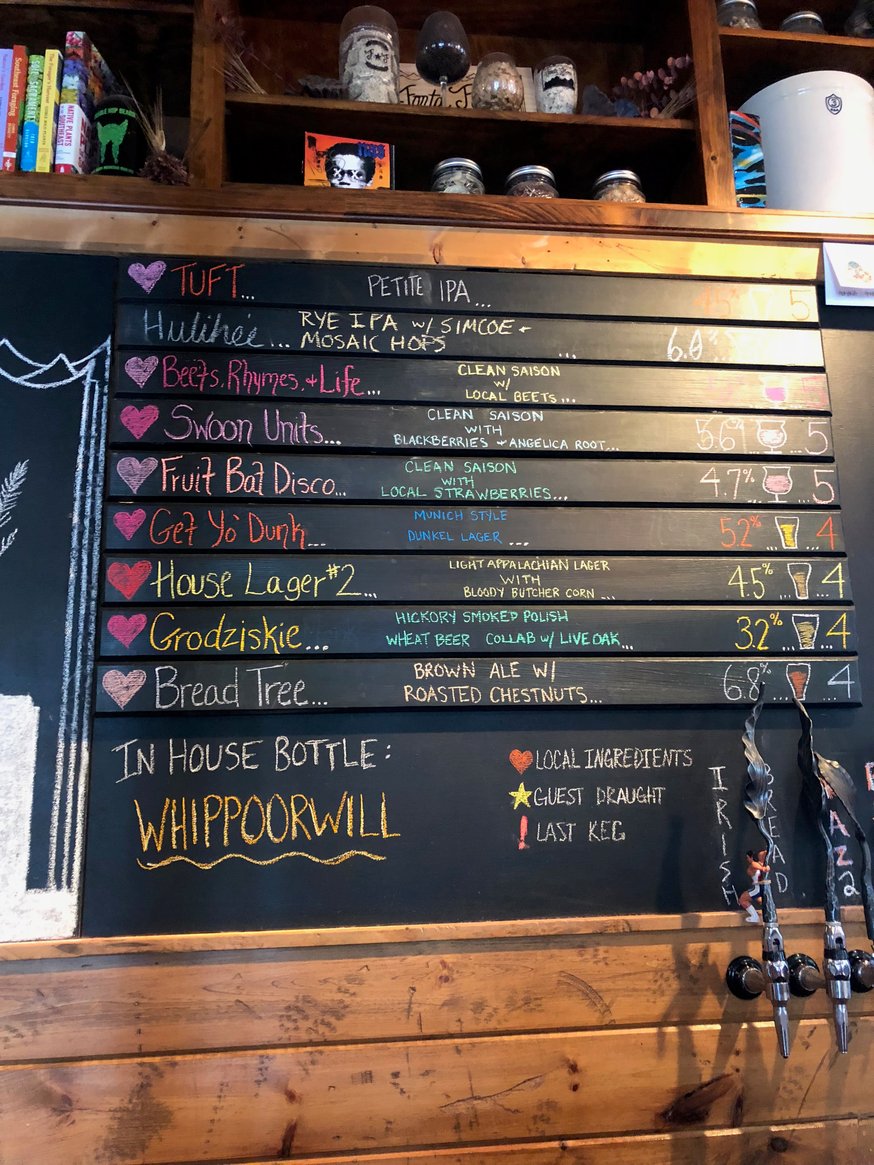 Southeast Foraging
NATIVE PLANTS
Fonta
TUFT... PETITE IPA... 5
Hulihe'e... RYE IPA W/ SIMCOE +
MOSAIC HOPS ... 6.0%
Beets, Rhymes, + Life... CLEAN SAISON
W/
LOCAL BEETS...
Swoon Units... CLEAN SAISON
WITH
BLACKBERRIES + ANGELICA ROOT... 5.6% ... 5
Fruit Bat Disco... CLEAN SAISON
WITH
LOCAL STRAWBERRIES... 4.7% ... 5
Get Yo' Dunk... MUNICH STYLE
DUNKEL LAGER ... 5.2% ... 4
House Lager #2... LIGHT APPALACHIAN LAGER
WITH
BLOODY BUTCHER CORN... 4.5% ... 4
Grodziskie... HICKORY SMOKED POLISH
WHEAT BEER COLLAB W/ LIVE OAK... 3.2% ... 4
Bread Tree... BROWN ALE W/
ROASTED CHESTNUTS... 6.8% ... 4
IN HOUSE BOTTLE:
WHIPPOORWILL
LOCAL INGREDIENTS
GUEST DRAUGHT
LAST KEG
IRISH
BREAD